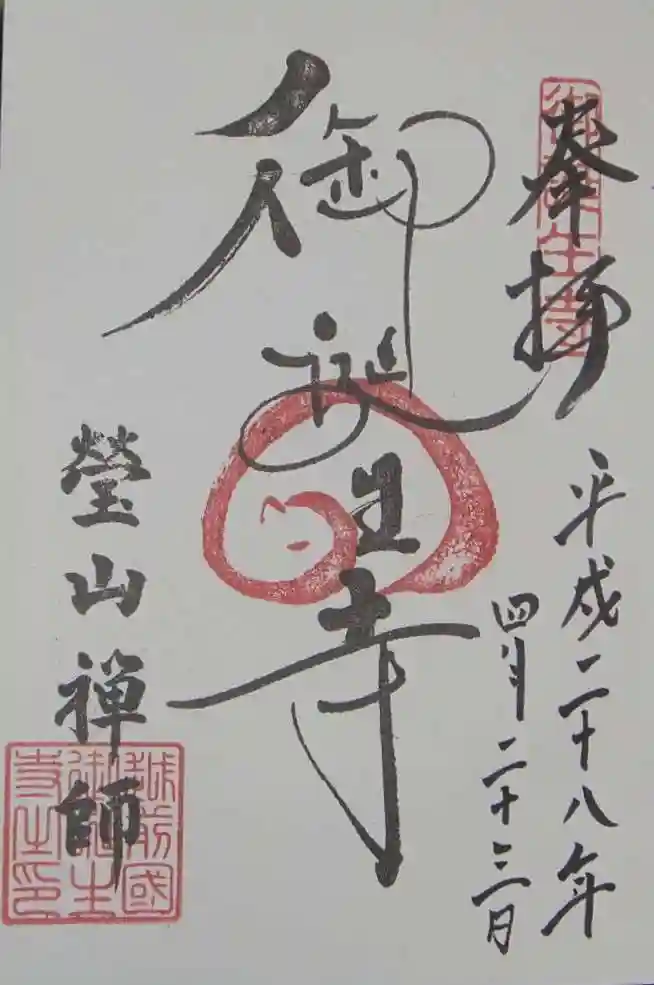 奉拝
平成二十八年
四月二十三日
御誕生寺
瑩山禅師
御誕生寺
越前國
御誕生
寺之印